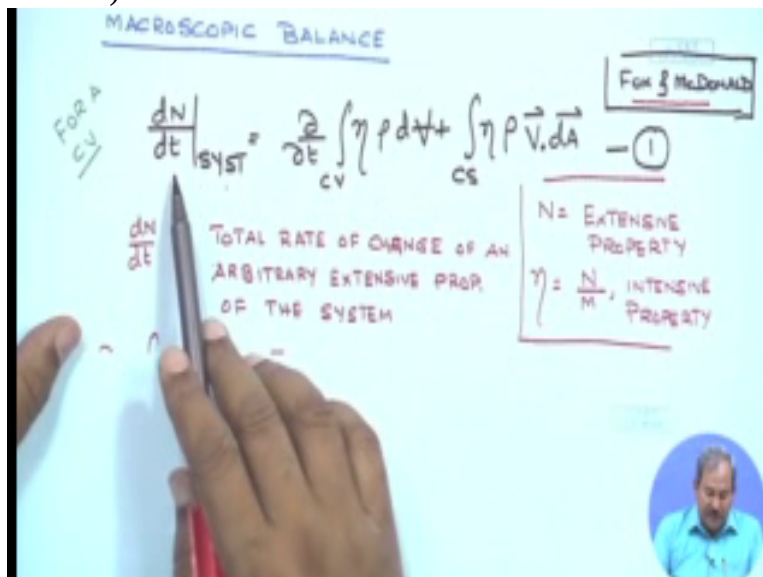 MACROSCOPIC BALANCE
FOX & McDONALD
FOR A
CV
dN/dt|SYST = ∂/∂t ∫CV η ρ d∀ + ∫CS η ρ V⃗. dA⃗ — ①
dN/dt TOTAL RATE OF CHANGE OF AN
ARBITRARY EXTENSIVE PROP.
OF THE SYSTEM
N = EXTENSIVE
PROPERTY
η = N/M, INTENSIVE
PROPERTY